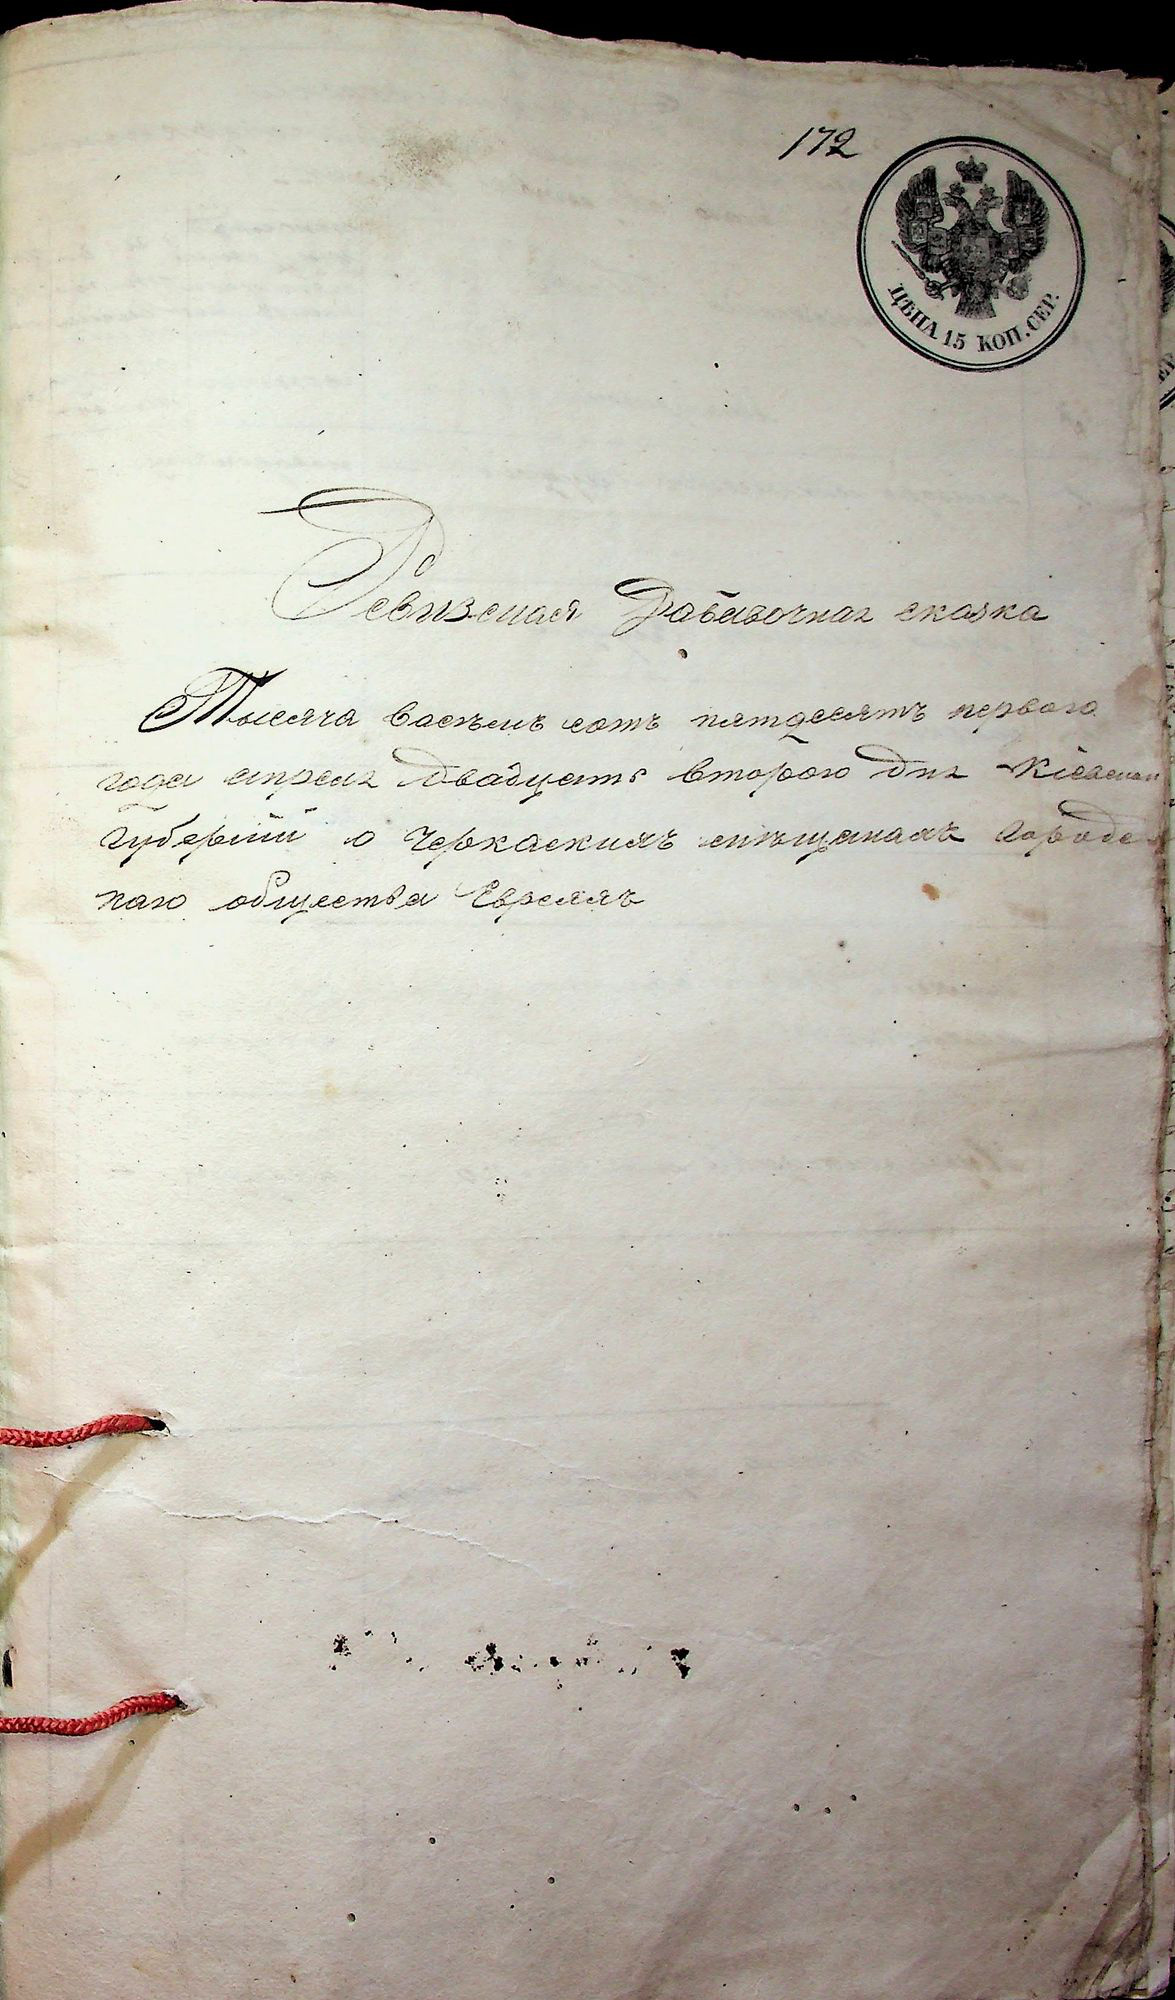 172
ЦѢНА 15 КОП. СЕР.
Ревизская Добавочная сказка
Тысяча восемь сотъ пятдесятъ первого
года апреля двадцать второго дня Кіевской
Губерніи о Черкаскихъ мѣщанахъ городс-
каго общества Евреяхъ